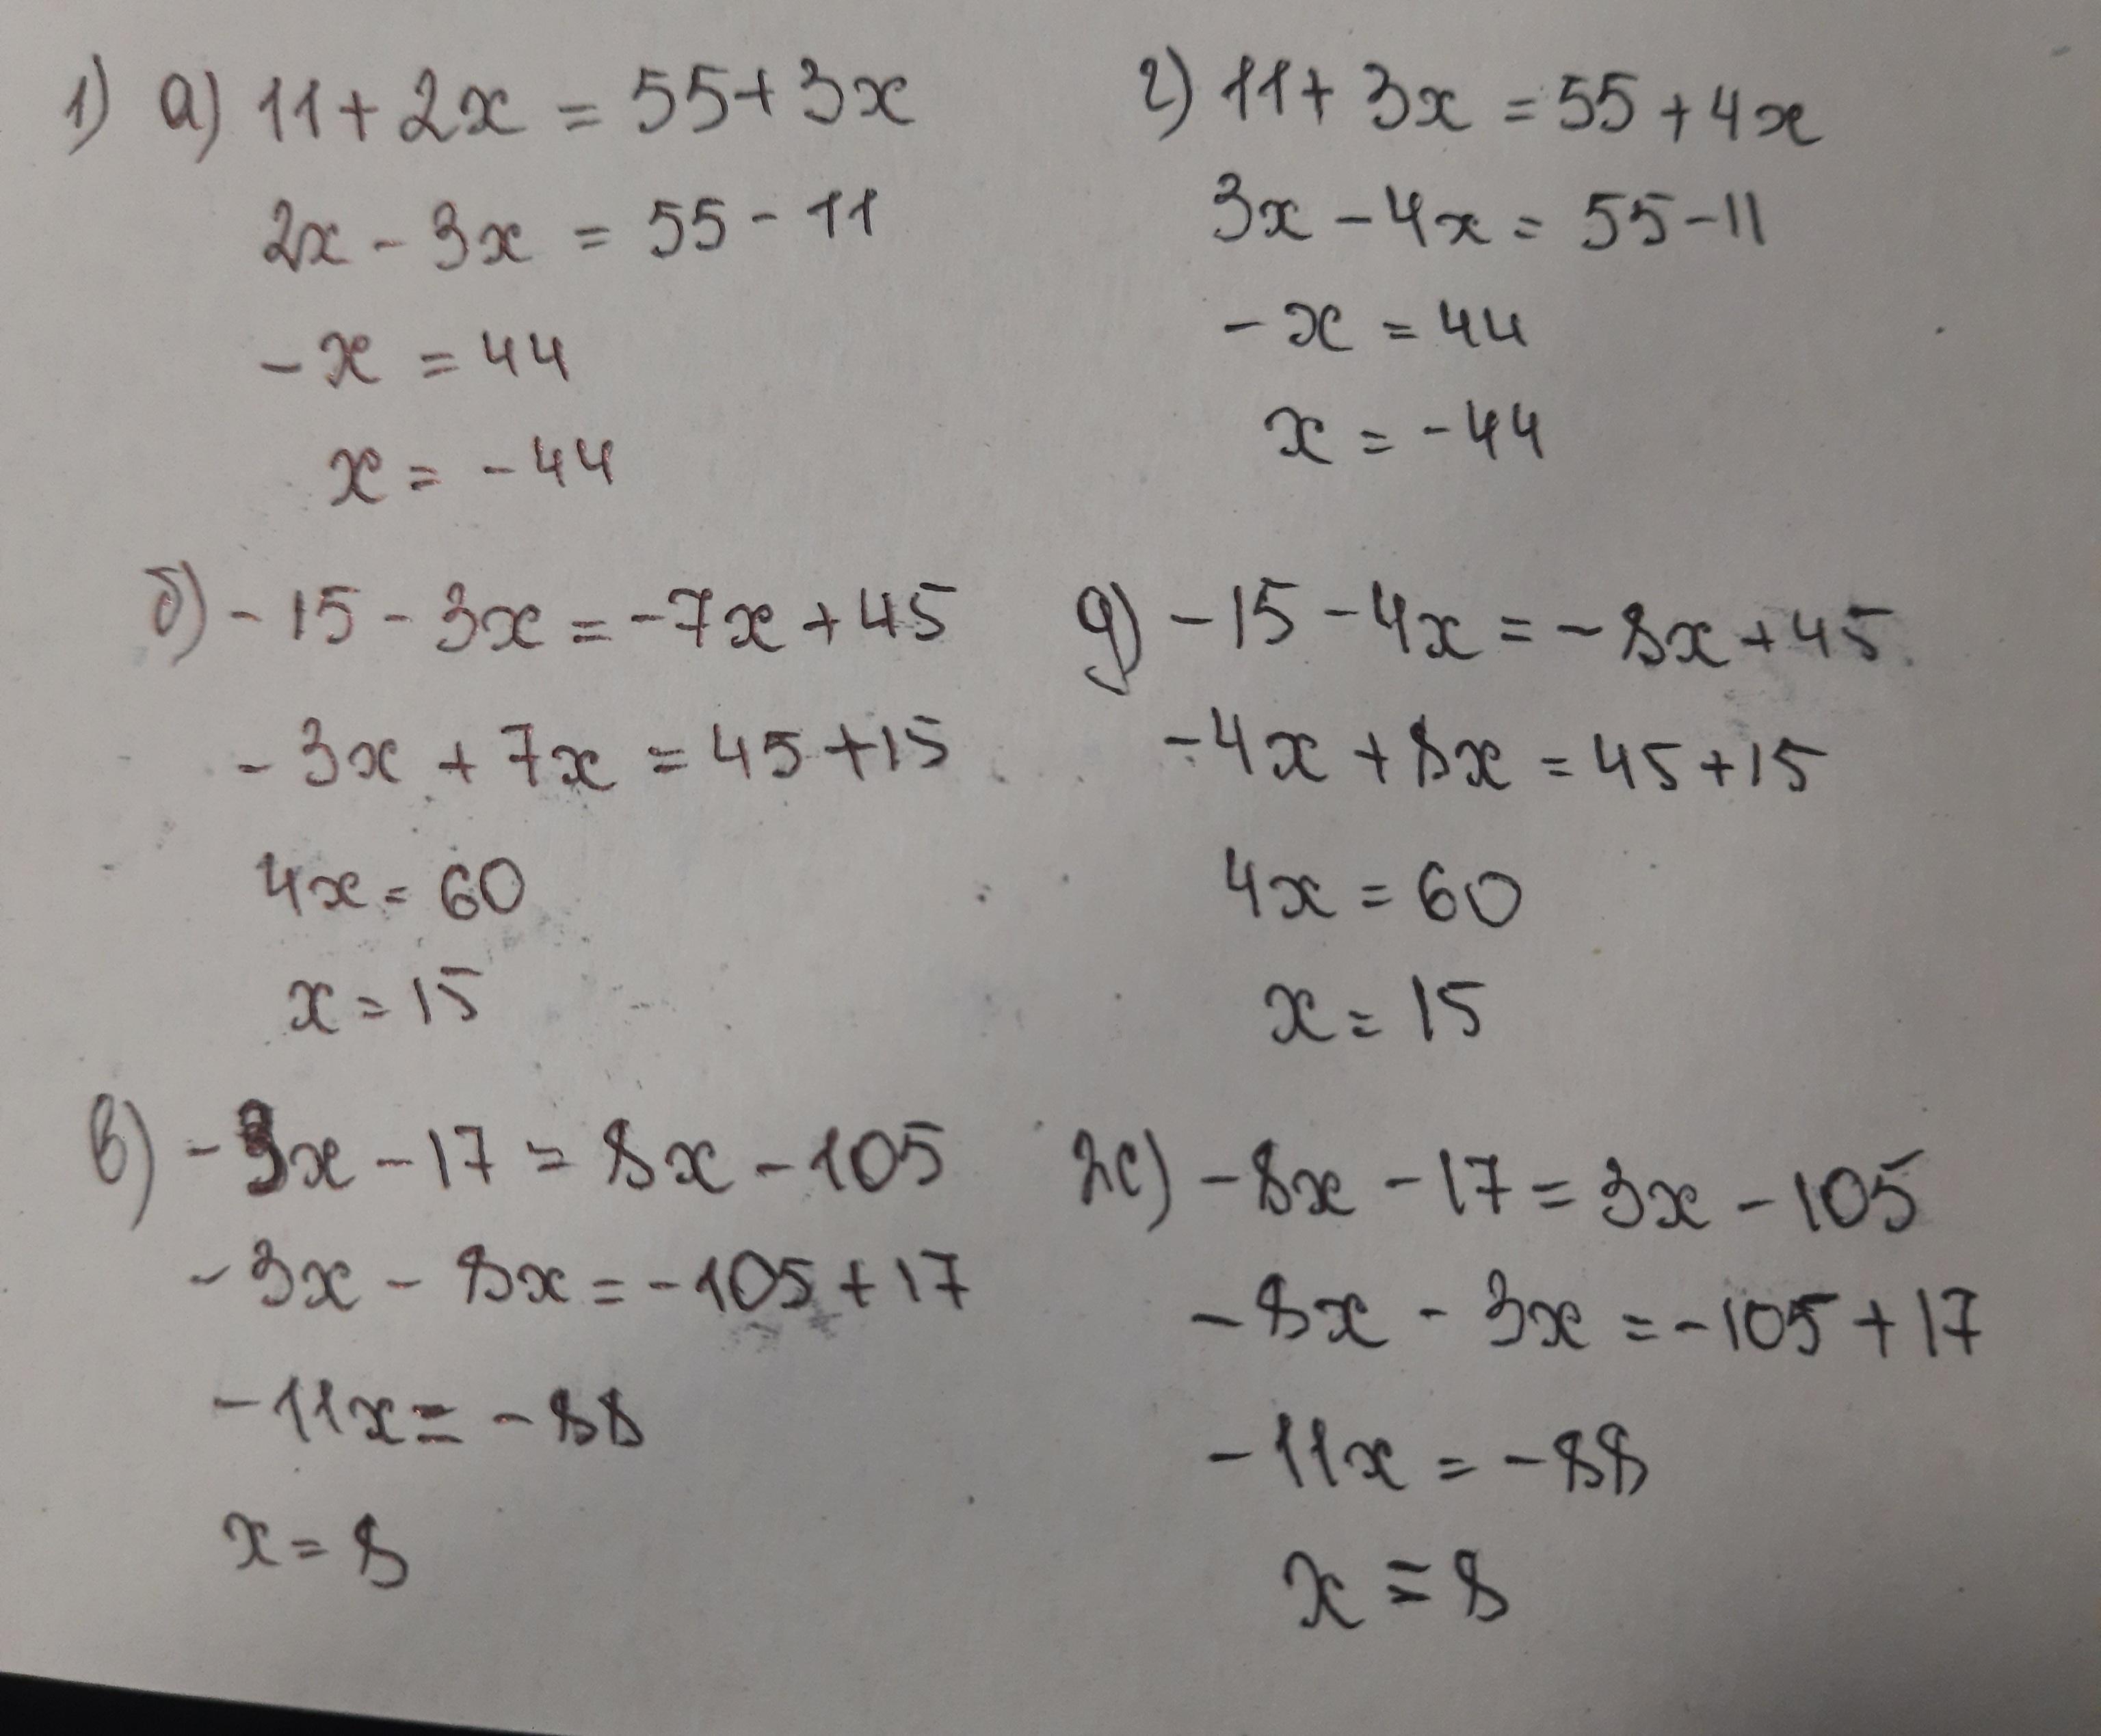 1) а) 11 + 2x = 55 + 3x
2x - 3x = 55 - 11
-x = 44
x = -44
б) -15 - 3x = -7x + 45
-3x + 7x = 45 + 15
4x = 60
x = 15
в) -3x - 17 = 8x - 105
-3x - 8x = -105 + 17
-11x = -88
x = 8
г) 11 + 3x = 55 + 4x
3x - 4x = 55 - 11
-x = 44
x = -44
д) -15 - 4x = -8x + 45
-4x + 8x = 45 + 15
4x = 60
x = 15
же) -8x - 17 = 3x - 105
-8x - 3x = -105 + 17
-11x = -88
x = 8